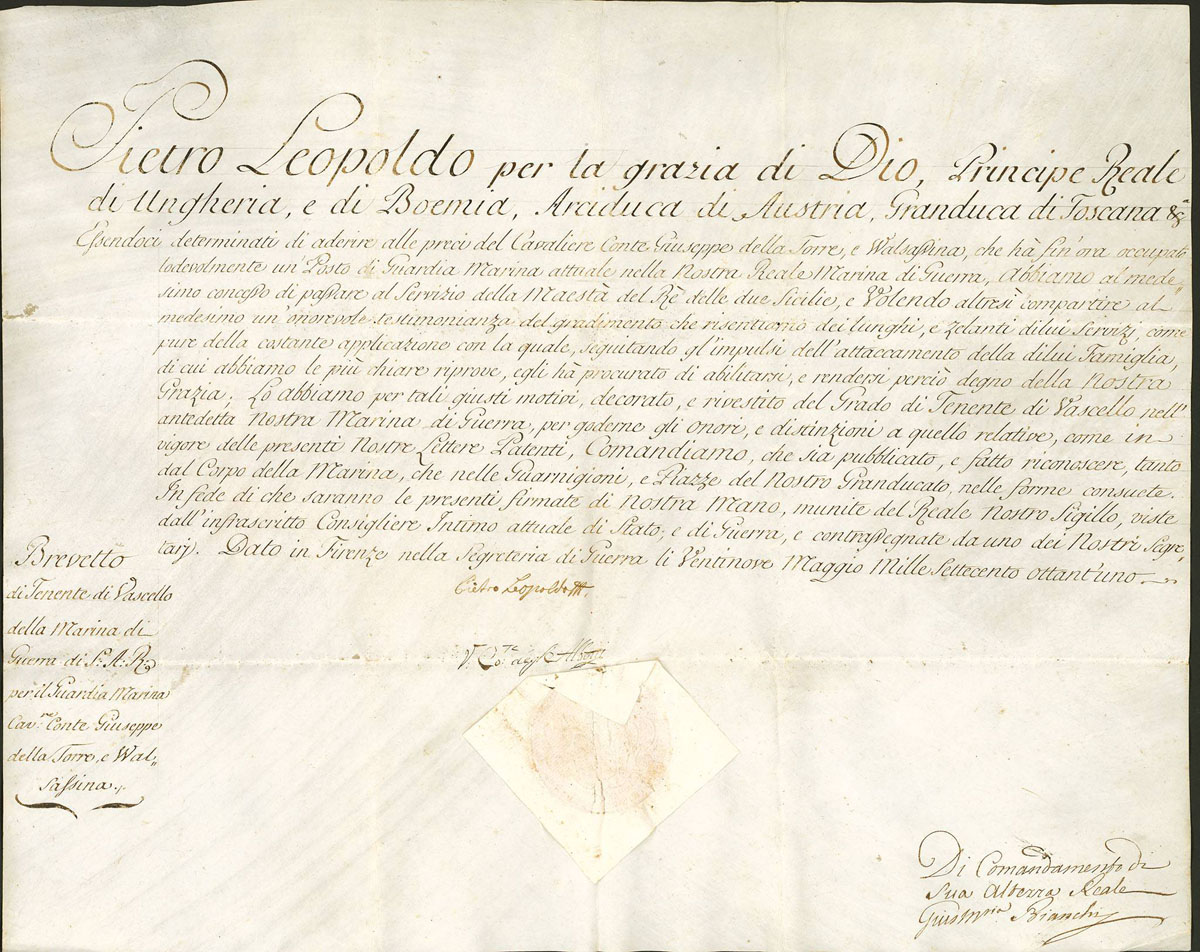 Pietro Leopoldo per la grazia di Dio, Principe Reale
di Ungheria, e di Boemia, Arciduca di Austria, Granduca di Toscana &c.ª
Essendoci determinati di aderire alle preci del Cavaliere Conte Giuseppe della Torre, e Walsassina, che hà fin'ora occupato
lodevolmente un'Posto di Guardia Marina attuale nella Nostra Reale Marina di Guerra, Abbiamo al mede„
simo concesso di passare al Servizio della Maestà del Rè delle due Sicilie, e Volendo altresì compartire al
medesimo un'onorevole testimonianza del gradimento che risentiamo dei lunghi, e Zelanti dilui Servizj, come
pure della costante applicazione con la quale, seguitando gl'impulsi dell'attaccamento della dilui Famiglia,
di cui abbiamo le più chiare riprove, egli hà procurato di abilitarsi, e rendersi perciò degno della Nostra
Grazia; Lo abbiamo per tali giusti motivi, decorato, e rivestito del Grado di Tenente di Vascello nell'
antedetta Nostra Marina di Guerra, per goderne gli onori, e distinzioni a quello relative, come in
vigore delle presenti Nostre Lettere Patenti, Comandiamo, che sia pubblicato, e fatto riconoscere, tanto
dal Corpo della Marina, che nelle Guarnigioni, e Piazze del Nostro Granducato, nelle forme consuete.
In fede di che saranno le presenti firmate di Nostra Mano, munite del Reale Nostro Sigillo, viste
dall'infrascritto Consigliere Intimo attuale di Stato, e di Guerra, e contrassegnate da uno dei Nostri Segre„
tarj. Dato in Firenze nella Segreteria di Guerra li Ventinove Maggio Mille Settecento ottant'uno
Pietro Leopoldo
V. Co.te
Brevetto
di Tenente di Vascello
della Marina di
Guerra di S: A: R:
per il Guardia Marina
Cav.re Conte Giuseppe
della Torre, e Wal„
sassina.
Di Comandamento di
Sua Altezza Reale
Gius M.ria Bianchi